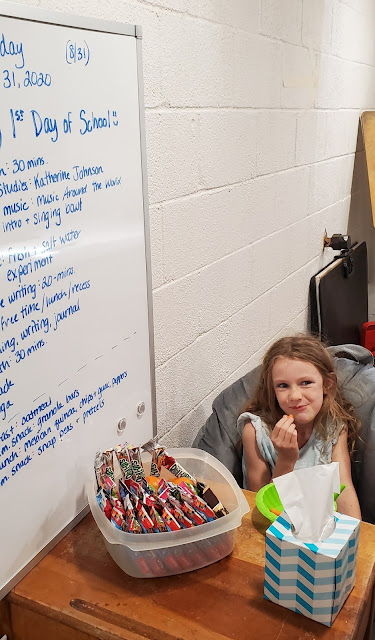 day (8/31)
31, 2020
1st Day of School!
: 30 mins.
studies: Katherine Johnson
music: music Around the World
intro + singing bowl
: fresh + salt water
experiment
e writing: 20-mins.
Free time/lunch/recess
ing, writing, journal
: 30 mins.
ast: oatmeal
.m. snack: granola bars
unch: mexican quinoa, chips + guac, peppers
.m. snack: snap peas + pretzels